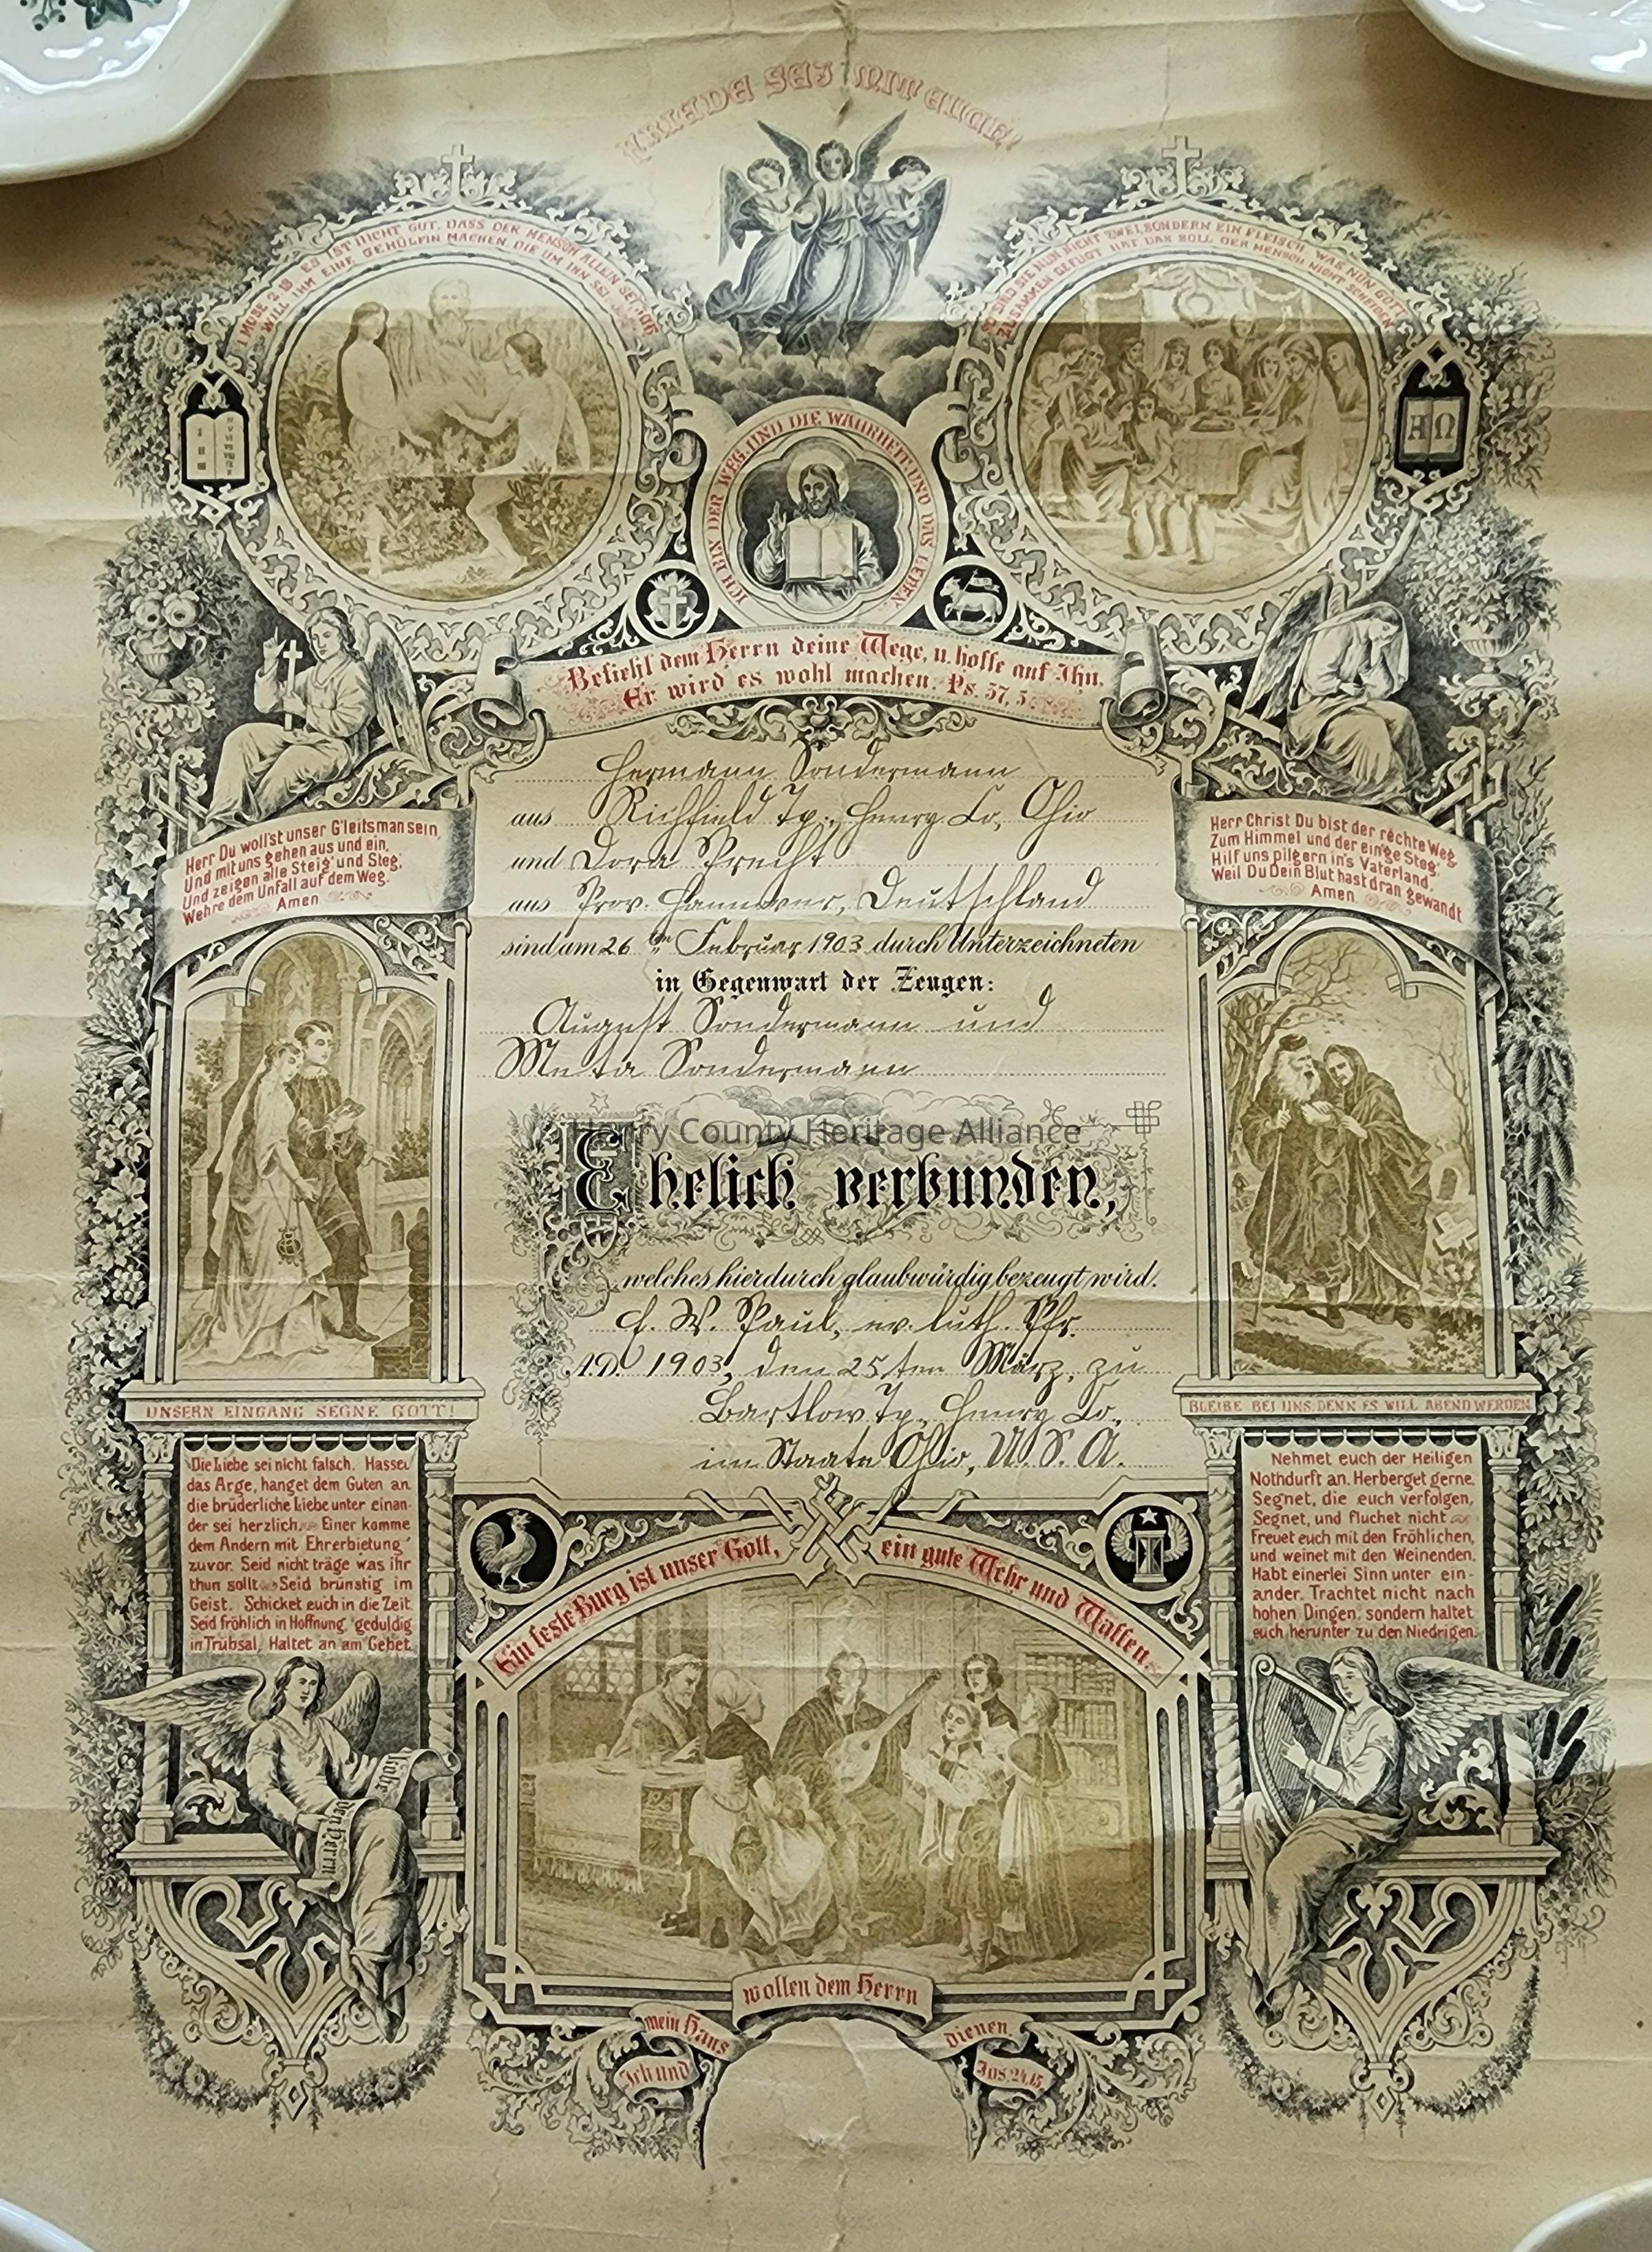 FRIEDE SEI MIT EUCH!
1 MOSE 2.18 ES IST NICHT GUT, DASS DER MENSCH ALLEIN SEI, ICH
WILL IHM EINE GEHÜLFIN MACHEN, DIE UM IHN SEI.
SO SIND SIE NUN NICHT ZWEI, SONDERN EIN FLEISCH, WAS NUN GOTT
ZUSAMMEN GEFÜGT HAT DAS SOLL DER MENSCH NICHT SCHEIDEN
ICH BIN DER WEG, UND DIE WAHRHEIT, UND DAS LEBEN.
I II III
A Ω
Befiehl dem Herrn deine Wege, u. hoffe auf Ihn,
Er wird es wohl machen. Ps. 37, 5.
Herr Du woll'st unser G'leitsman sein,
Und mit uns gehen aus und ein,
Und zeigen alle Steig' und Steg;
Wehre dem Unfall auf dem Weg.
Amen.
Herr Christ Du bist der rechte Weg,
Zum Himmel und der ein'ge Steg;
Hilf uns pilgern in's Vaterland,
Weil Du Dein Blut hast dran gewandt
Amen.
Hermann Sondermann
aus Richfield Tp., Henry Co, Ohio
und Dora Precht
aus Prov. Hannover, Deutschland
sind am 26ten Februar 1903 durch Unterzeichneten
in Gegenwart der Zeugen:
August Sondermann und
Meta Sondermann
Henry County Heritage Alliance
Ehelich verbunden,
welches hierdurch glaubwürdig bezeugt wird.
W. Paul, ev. luth. Pfr.
A.D. 1903, den 25ten März, zu
Bartlow Tp., Henry Co.,
im Staate Ohio, U. S. A.
UNSERN EINGANG SEGNE GOTT!
BLEIBE BEI UNS, DENN ES WILL ABEND WERDEN.
Die Liebe sei nicht falsch. Hasset
das Arge, hanget dem Guten an.
die brüderliche Liebe unter einan-
der sei herzlich. Einer komme
dem Andern mit Ehrerbietung
zuvor. Seid nicht träge was ihr
thun sollt. Seid brünstig im
Geist. Schicket euch in die Zeit.
Seid fröhlich in Hoffnung, geduldig
in Trübsal, Haltet an am Gebet.
Nehmet euch der Heiligen
Nothdurft an. Herberget gerne.
Segnet, die euch verfolgen,
Segnet, und fluchet nicht
Freuet euch mit den Fröhlichen,
und weinet mit den Weinenden.
Habt einerlei Sinn unter ein-
ander. Trachtet nicht nach
hohen Dingen, sondern haltet
euch herunter zu den Niedrigen.
Ein feste Burg ist unser Gott, ein gute Wehr und Waffen.
Lobe
den Herrn
Ich und
mein Haus
wollen dem Herrn
dienen.
Jos. 24,15